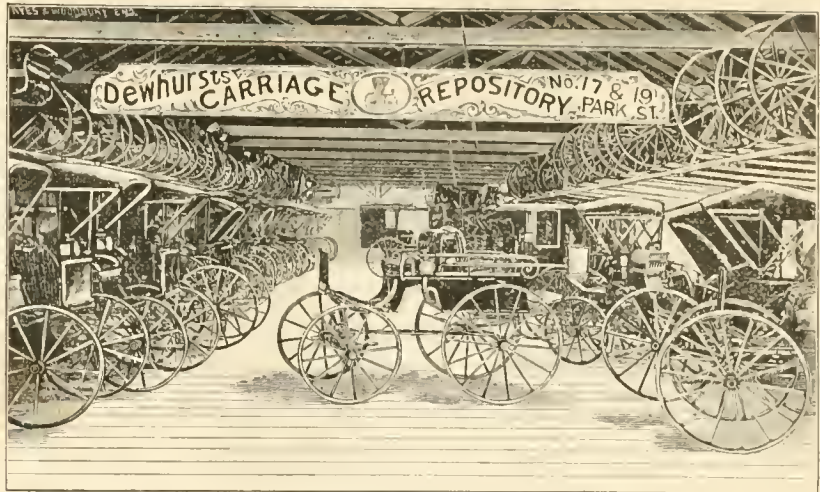 Dewhursts CARRIAGE REPOSITORY No. 17 & 19 PARK ST.